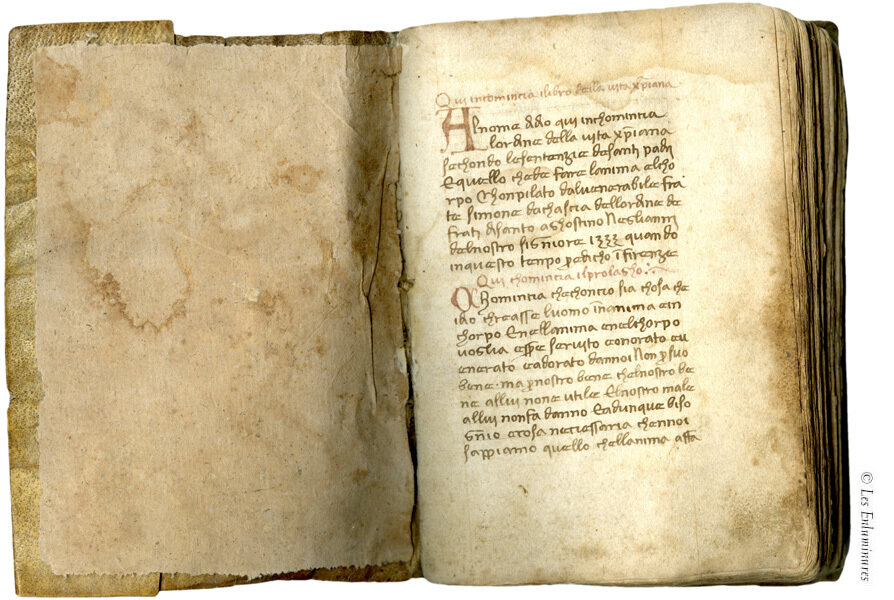 Qui incomincia ilibro della vita xp̄iana
Al nome didio qui inchomincia
lordine della vita xp̄iana
sechondo lesentenzie desanti padri
Equello chede fare lanima elcho
rpo Chonpilato dalvenerabile fra
te Simone dachascia dellordine de
frati disanto aghostino Neglianni
delnostro signiore 1333 quando
inquesto tempo predicho ifirenze
Qui chomincia ilprolagho
Chomincia
idio chreasse luomo inanima ein
chorpo Enellanima enelchorpo
voglia esse servito eonorato eu
enerato eadorato dannoi Non per suo
bene ma per nostro bene chelnostro be
ne allui none utile Elnostro male
allui nonfa danno Eadunque biso
gnio ecosa neciessaria chennoi
sappiamo quello chellanima
© Les Enluminures